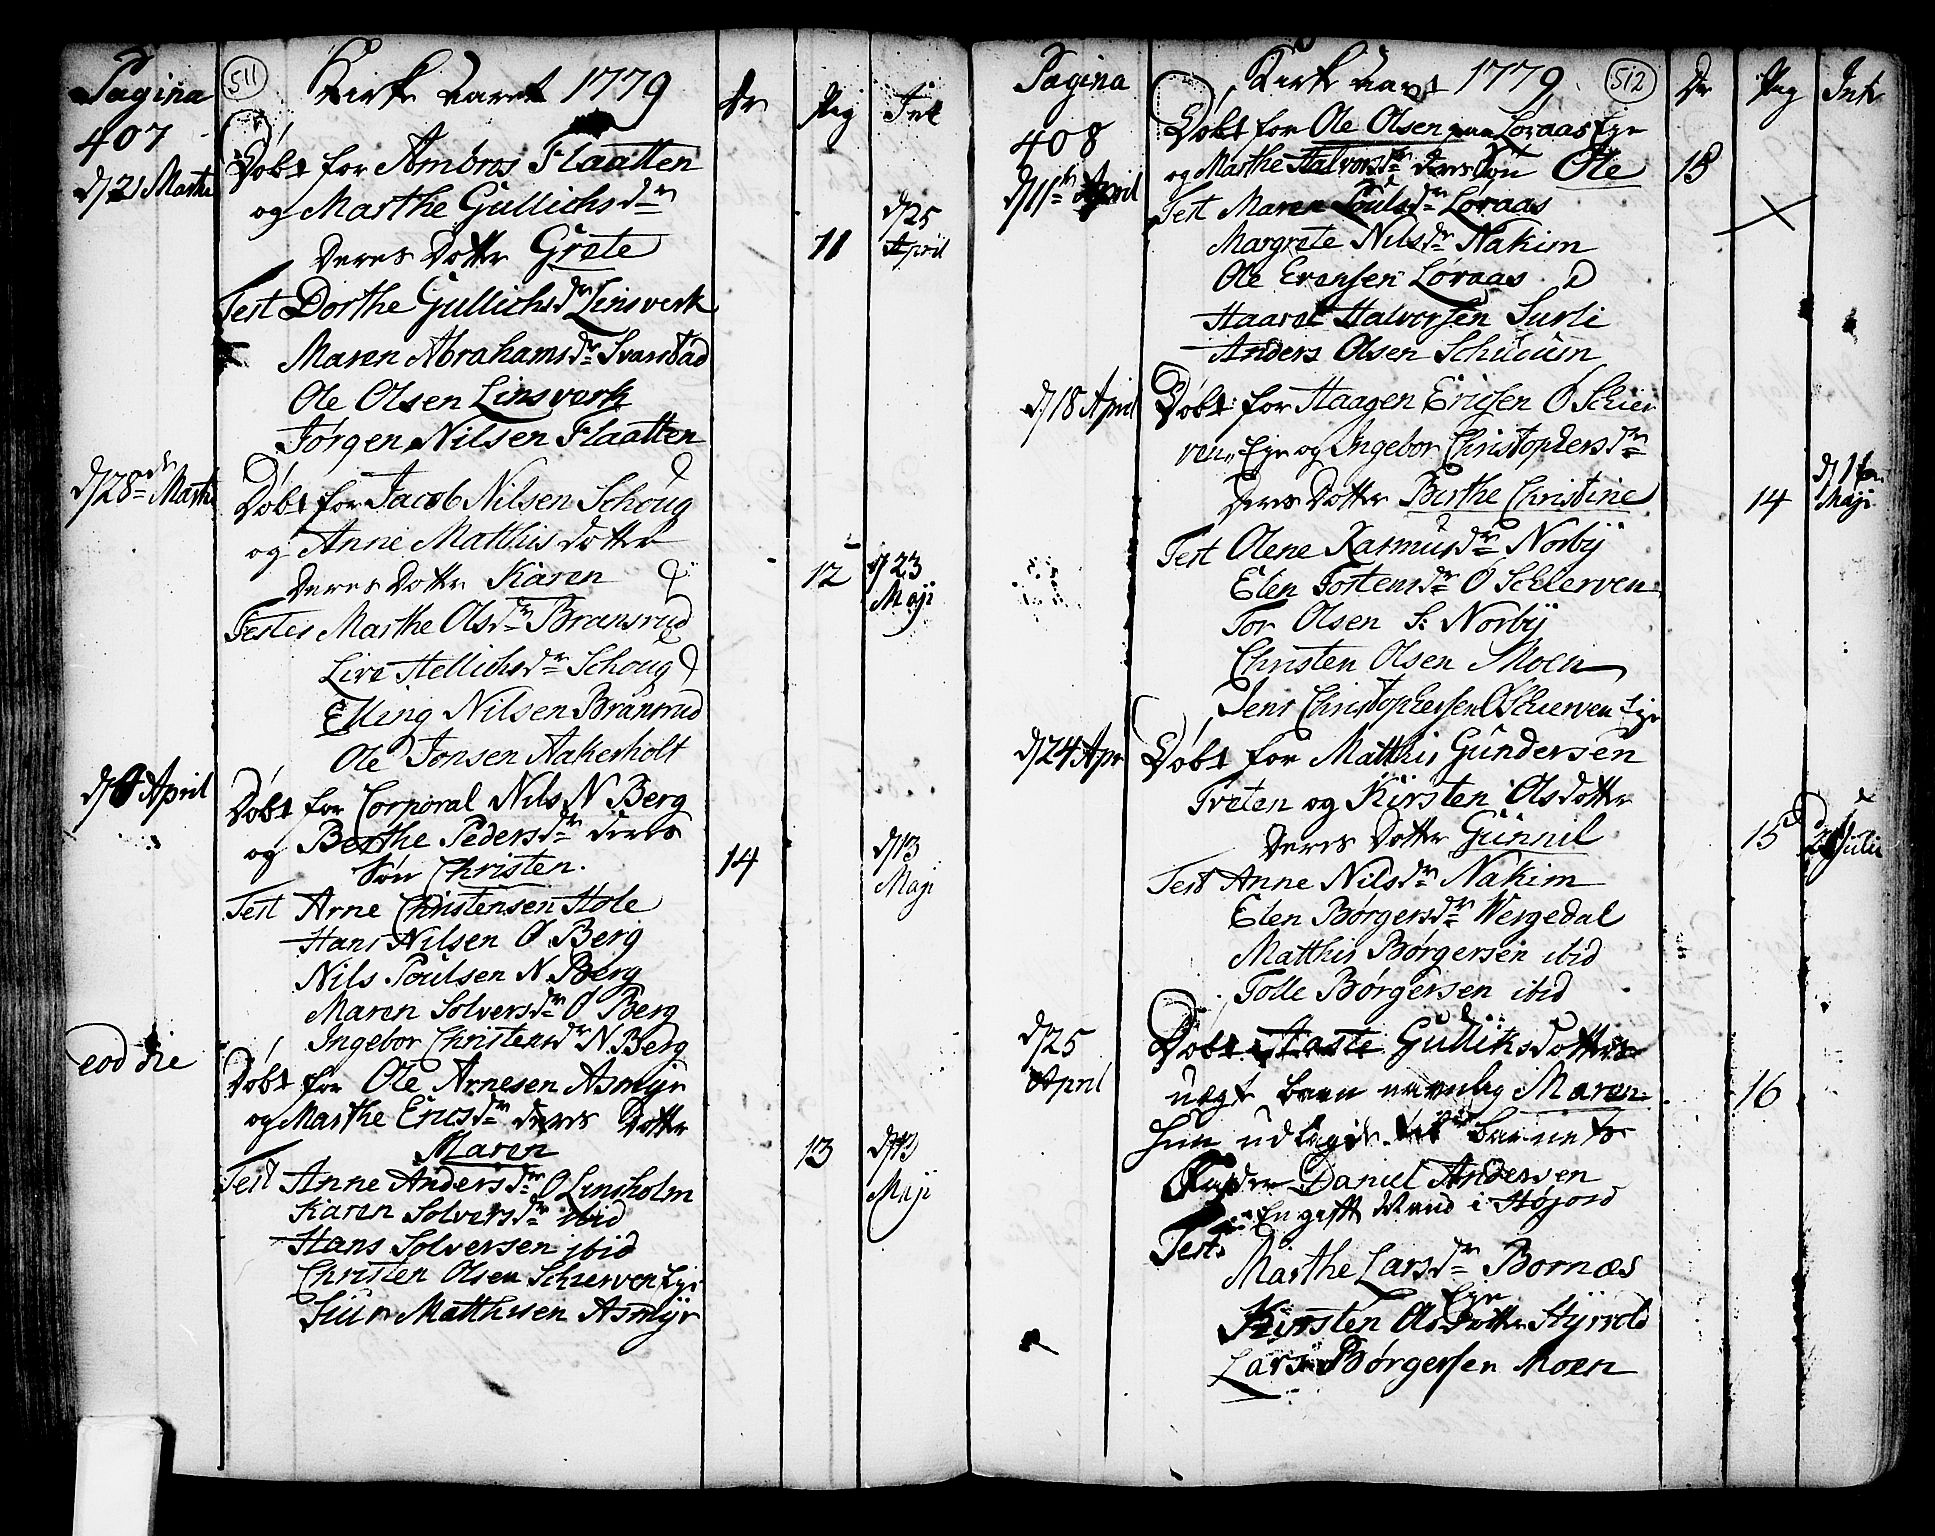 Pagina
407
511
Kirke aaret 1779
Dr
Pig
Int
d/21 Martii
Døbt for Ambros Flaatten
og Marthe Gullichsdr
deres Dotter Grete
11
d/25
April
Test Dorthe Gullichsdr Linsverk
Maren Abrahamsdr Svarstad
Ole Olsen Linsverk
Jørgen Nilsen Flaatten
d/28de Martii
Døbt for Jacob Nilsen Schoug
og Anne Matthisdotter
deres Dotter Karen
12
d/23
Maji
Testes Marthe Olsdr Bransrud
Live Hellichsdr Schoug
Elling Nilsen Bransrud
Ole Jonsen Aakerholt
April
Døbt for Corporal Nils N Berg
og Berthe Pedersdr deres
Søn Christen.
14
d/13
Maji
Test Arne Christensen Hole
Hans Nilsen Ø Berg
Nils Poulsen N Berg
Maren Solversdr Ø Berg
Ingebor Christensdr N Berg
eod die
Døbt for Ole Arnesen Asmyr
og Marthe Ericsdr deres Dotter
Maren
13
d/13
Maji
Test Anne Andersdr Ø Linsholm
Karen Solversdr ibid
Hans Solversen ibid
Christen Olsen Schierven Eje
Juur Matthisen Asmyr
Pagina
408
Kirke aaret 1779
512
Dr
Pig
Int
d/11te April
Døbt for Ole Olsen paa Løraas Eje
og Marthe Halvorsdr deres Søn Ole
15
Test Maren Poulsdr Løraas
Margrete Nilsdr Nakim
Ole Evensen Løraas
Haaret Halvorsen Surli
Anders Olsen Schuum
d/18 April
Døbt for Haagen Ericsen Ø Schier
ven Eje og Ingebor Christophersdr
deres Dotter Berthe Christine
14
d/1
Maji
Test Olene Rasmusdr Norby
Elen Tostensdr Ø Schierven
Tor Olsen S: Norby
Christen Olsen Moen
Jens Christophersen Ø Schierven Eje
d/24 Apr
Døbt for Matthis Gundersen
Tveten og Kirsten Olsdotter
deres Dotter Gunnil
15
Julii
Test Anne Nilsdr Nakim
Elen Børgersdr Wergedal
Matthis Børgersen ibid
Tolle Børgersen ibid
d/25
April
Døbt Aaste Gulliksdotters
uegt barn navnlig Maren
16
hun udlagde til barnets
Fader Daniel Andersen
En gift Mand i Høyord
Test:
Marthe Larsdr Bornæs
Eje
Kirsten Olsdotter Hyrvold
Lars Børgersen Moen